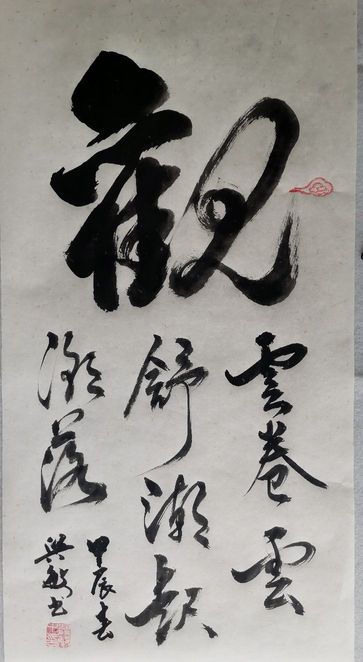 觀
雲卷雲
舒潮起
潮落
甲辰春
书